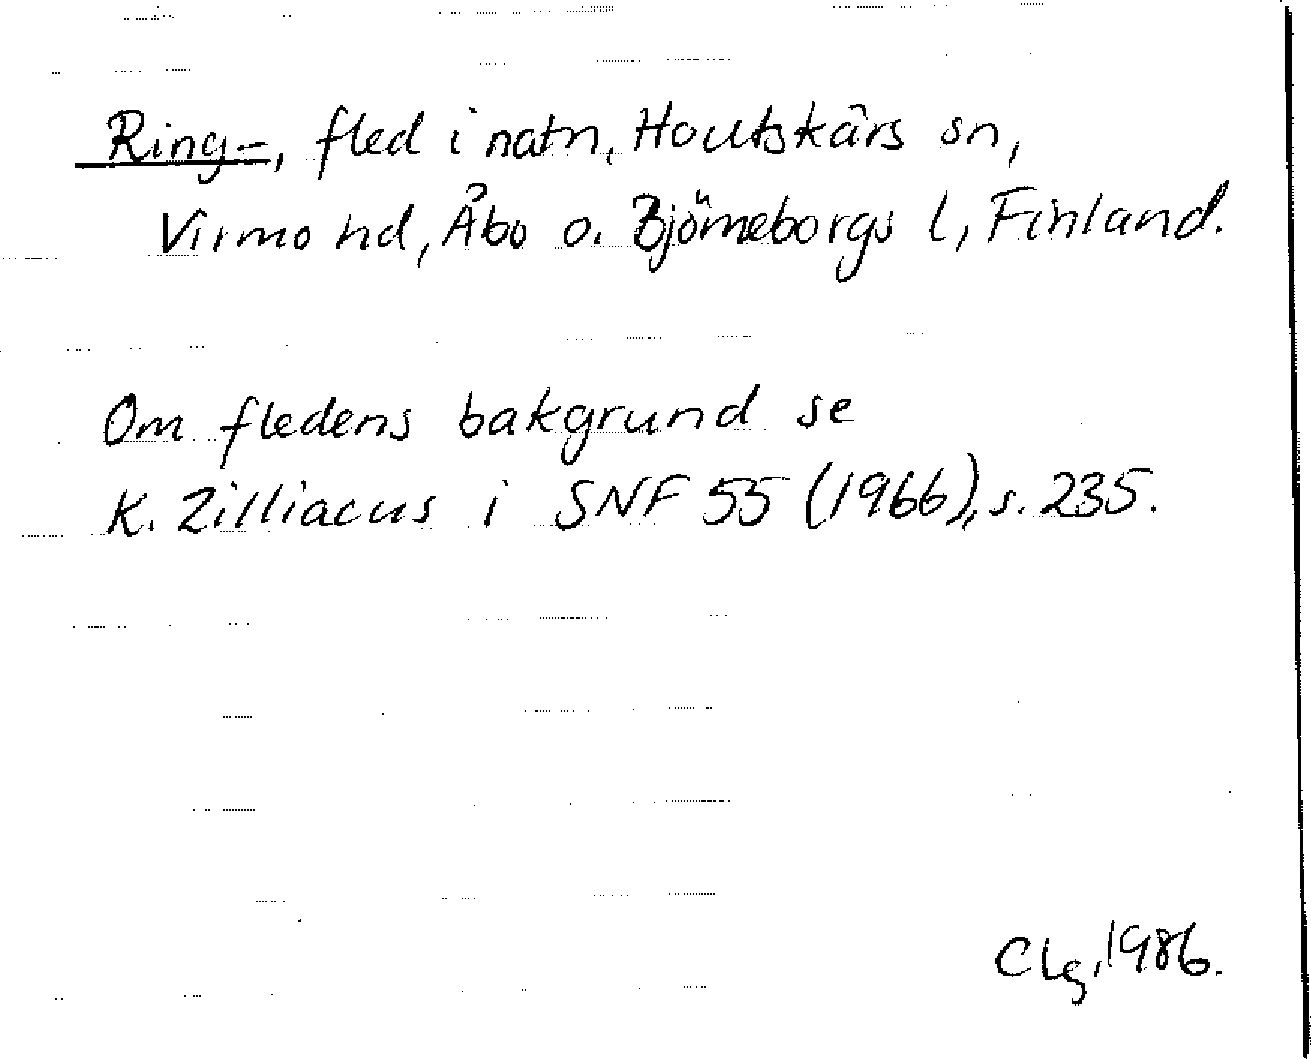 Ring-, fled i natn, Houtskärs sn,
Virmo hd, Åbo o. Björneborgs l, Finland.
Om fledens bakgrund se
K. Zilliacus i SNF 55 (1966), s. 235.
Clg, 1986.